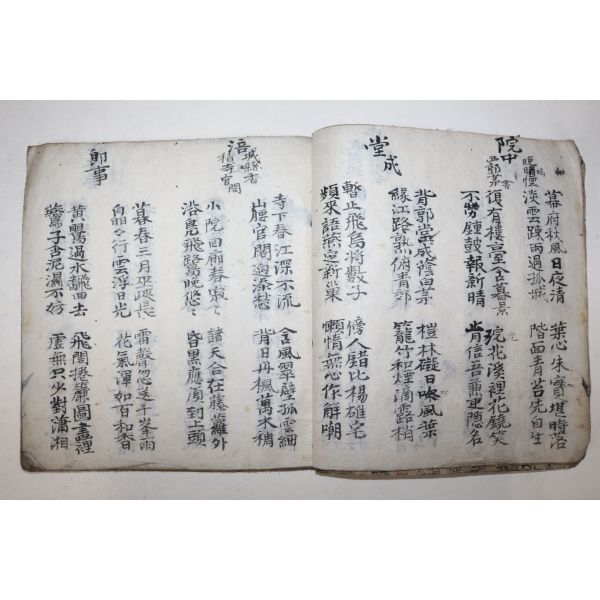 院中
晚晴懷
西郭茅舍
幕府秋風日夜清 葉心朱實堪時落
淡雲疎雨過孤城 階面青苔先自生
復有樓臺含暮景 浣花溪裡花饒笑
不勞鍾鼓報新晴 肯信吾兼吏隱名
堂成
背郭堂成蔭白茅 榿林礙日吟風葉
緣江路熟俯青郊 籠竹和煙滴露梢
暫止飛烏將數子 傍人錯比楊雄宅
頻來語燕定新巢 懶惰無心作解嘲
涪
城縣香
積寺官閣
寺下春江深不流 含風翠壁孤雲細
山腰官閣迥添愁 背日丹楓萬木稠
小院回廊春寂〻 諸天合在藤蘿外
浴鳧飛鷺晚悠〻 昏黑應須到上頭
即事
暮春三月巫峽長 雷聲忽送千峯雨
皛〻行雲浮日光 花氣渾如百和香
黃鶯過水飜回去 飛閣捲簾圖畫裡
鷰子含泥濕不妨 虛無只少對瀟湘